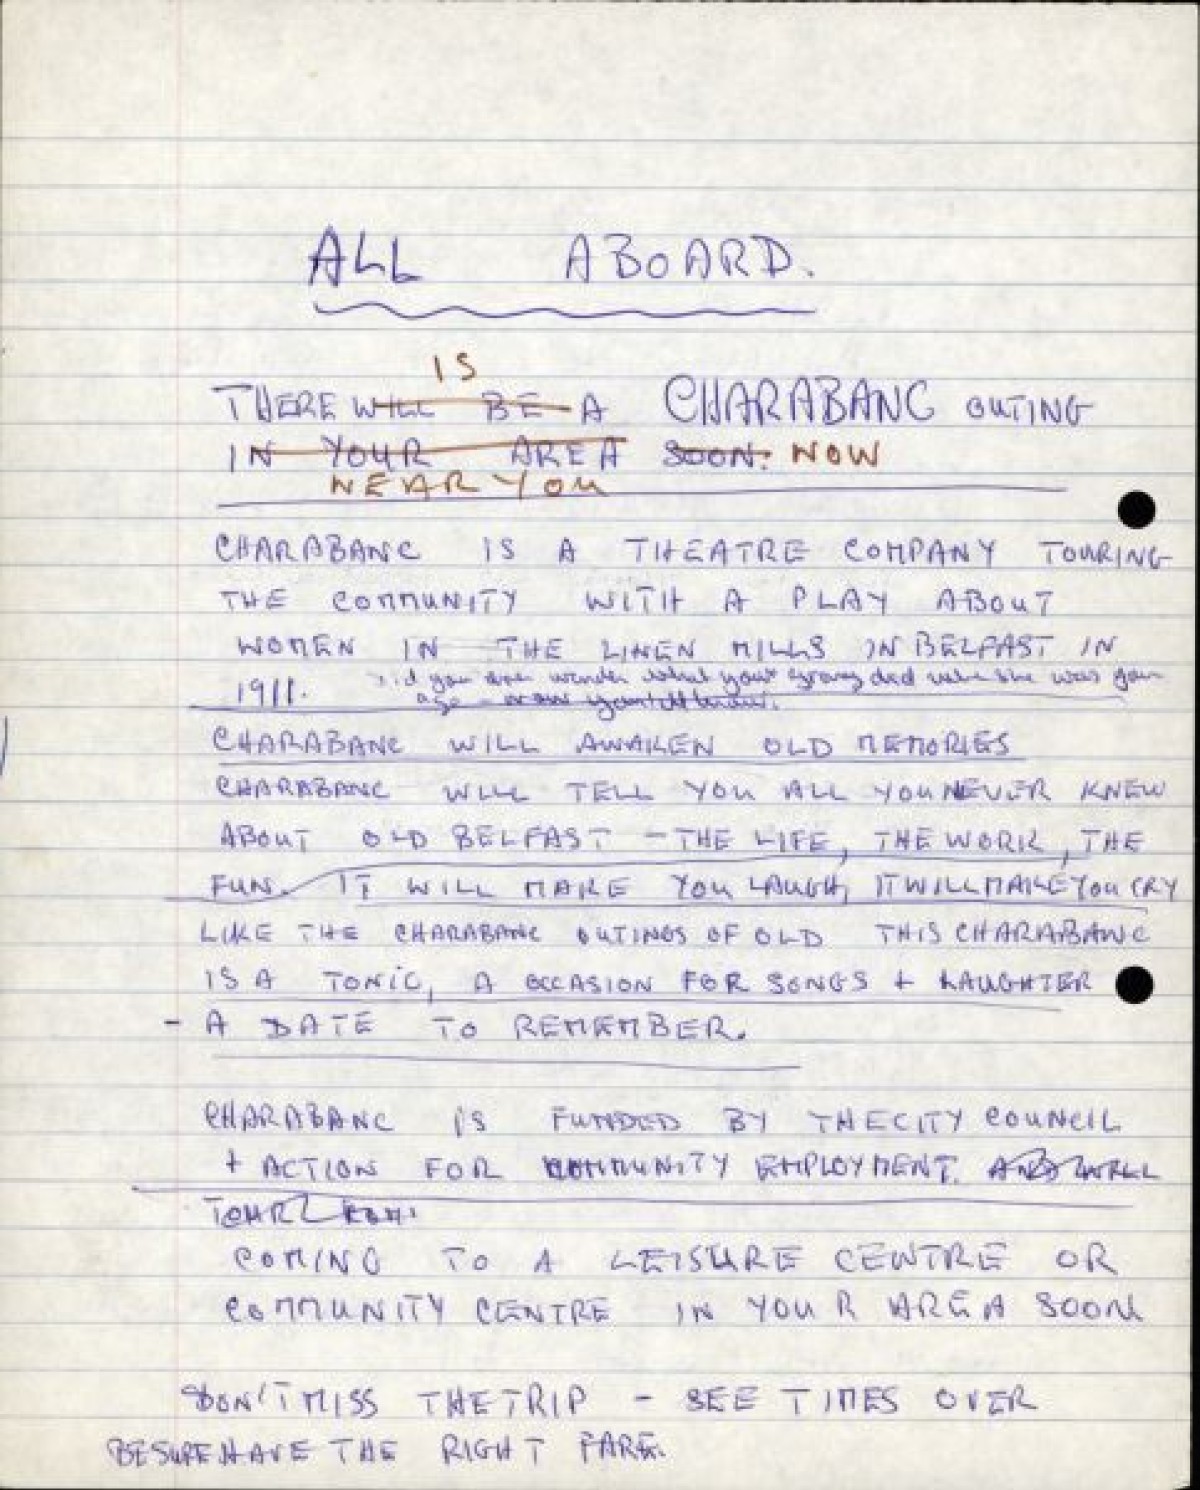 ALL ABOARD.
IS
THERE WILL BE A CHARABANC OUTING
IN YOUR AREA SOON. NOW
NEAR YOU
CHARABANC IS A THEATRE COMPANY TOURING
THE COMMUNITY WITH A PLAY ABOUT
WOMEN IN THE LINEN MILLS IN BELFAST IN
1911. did you ever wonder what your granny did when she was your
age - now you'll know.
CHARABANC WILL AWAKEN OLD MEMORIES
CHARABANC WILL TELL YOU ALL YOU NEVER KNEW
ABOUT OLD BELFAST - THE LIFE, THE WORK, THE
FUN. IT WILL MAKE YOU LAUGH, IT WILL MAKE YOU CRY
LIKE THE CHARABANC OUTINGS OF OLD THIS CHARABANC
IS A TONIC, A OCCASION FOR SONGS + LAUGHTER
- A DATE TO REMEMBER.
CHARABANC IS FUNDED BY THE CITY COUNCIL
+ ACTION FOR COMMUNITY EMPLOYMENT. AND WILL
TOUR
COMING TO A LEISURE CENTRE OR
COMMUNITY CENTRE IN YOUR AREA SOON
DON'T MISS THE TRIP - SEE TIMES OVER
BE SURE HAVE THE RIGHT FARE.